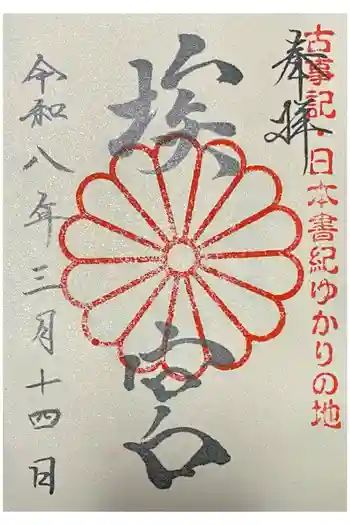 古事記 日本書紀ゆかりの地
奉拝
埃宮
令和八年三月十四日